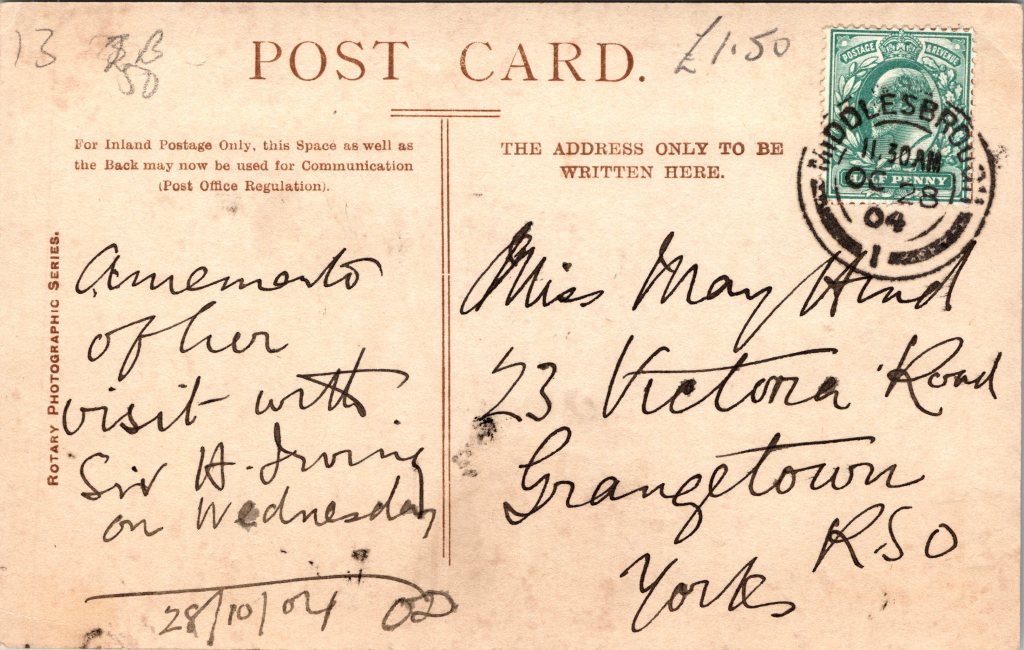 13
£1.50
POST CARD.
For Inland Postage Only, this Space as well as
the Back may now be used for Communication
(Post Office Regulation).
THE ADDRESS ONLY TO BE
WRITTEN HERE.
POSTAGE & REVENUE
HALF PENNY
MIDDLESBROUGH
11.30AM
OC 28
04
1
ROTARY PHOTOGRAPHIC SERIES.
A memento
of her
visit with
Sir H. Irving
on Wednesday
28/10/04 OD
Miss May Hind
23 Victoria Road
Grangetown
R.S.O
Yorks